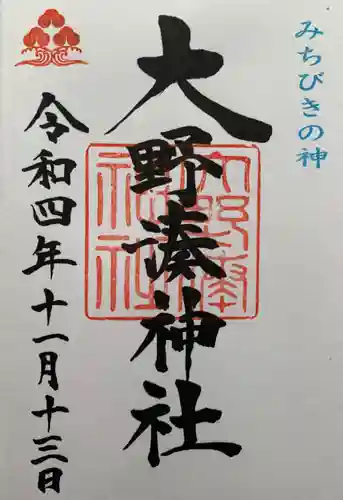 みちびきの神
大野湊神社
令和四年十一月十三日